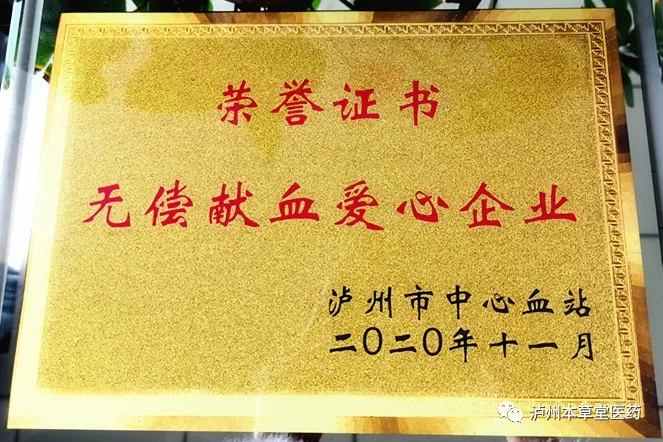 荣誉证书
无偿献血爱心企业
泸州市中心血站
二〇二〇年十一月
泸州本草堂医药